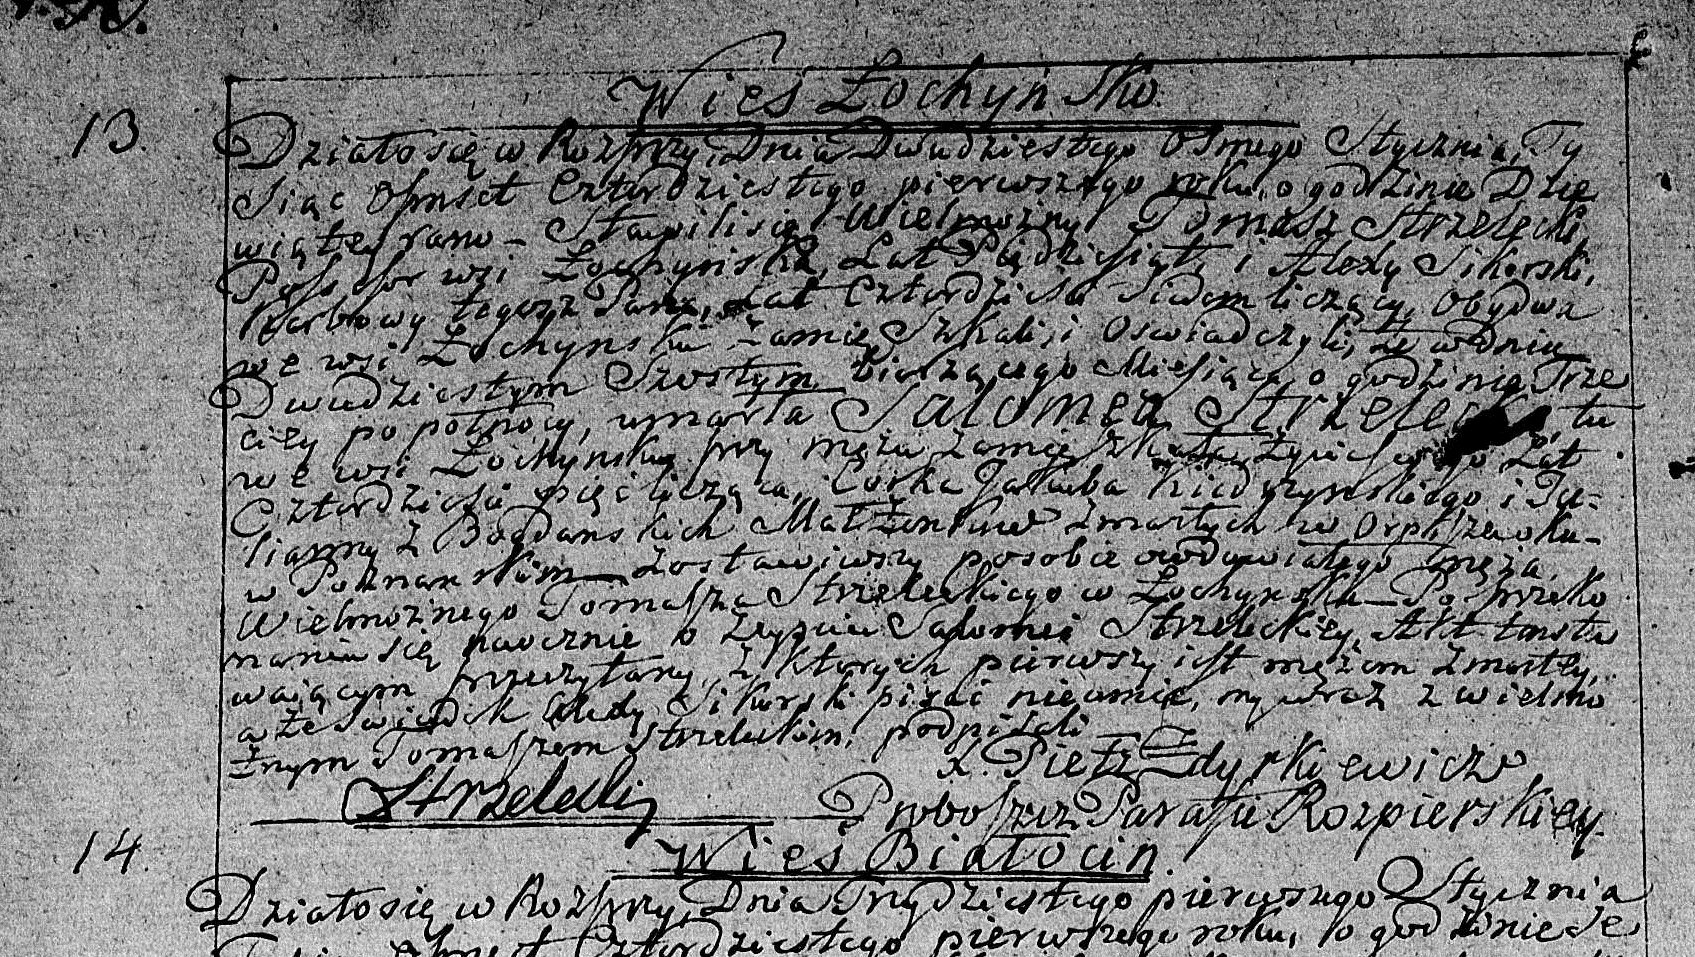 13.
Wieś Łochyńsko.
Działo się w Rozprzy, Dnia Dwudziestego Osmego Stycznia, Ty
siąc Osmset Czterdziestego pierwszego roku, o godzinie Dzie
wiątey rano – Stawili się Wielmożny Tomasz Strzelecki
Posesor wsi Łochyńska, Lat Pięćdziesiąt, i Alexy Sikorski,
Karbowy tegoż Pana, Lat Czterdzieści Siedm liczący, Obydwa
we wsi Łochyńsku zamieszkali, i Oświadczyli, że w dniu
Dwudziestym Szostym bieżącego Miesiąca, o godzinie Trze
ciey po połnocy, umarła Salomea Strzelecka, tu
we wsi Łochyńsku przy mężu zamieszkała, Lat
Czterdzieści pięć licząca, Córka Jakuba Kiedrzyńskiego i Ju-
lianny z Bogdańskich Małżonków zmarłych w
w Poznańskim – Zostawiwszy po sobie owdowiałego męża
Wielmożnego Tomasza Strzeleckiego w Łochyńsku – Po przeko
naniu się naocznie o zeyściu Salomei Strzeleckiey, Akt ten sta
waiącym przeczytany, z których pierwszy iest mężem zmarłey,
a że świadek Alexy Sikorski pisać nieumie, my wraz z Wielmo
żnym Tomaszem Strzeleckim, podpisali
x. Piotr Zdyrkiewicz
Strzelecki
Proboszcz Parafii Rozpierskiey
14.
Wieś Białocin.
Działo się w Rozprzy, Dnia Trzydziestego pierwszego Stycznia
Osmset Czterdziestego pierwszego roku, o godzinie